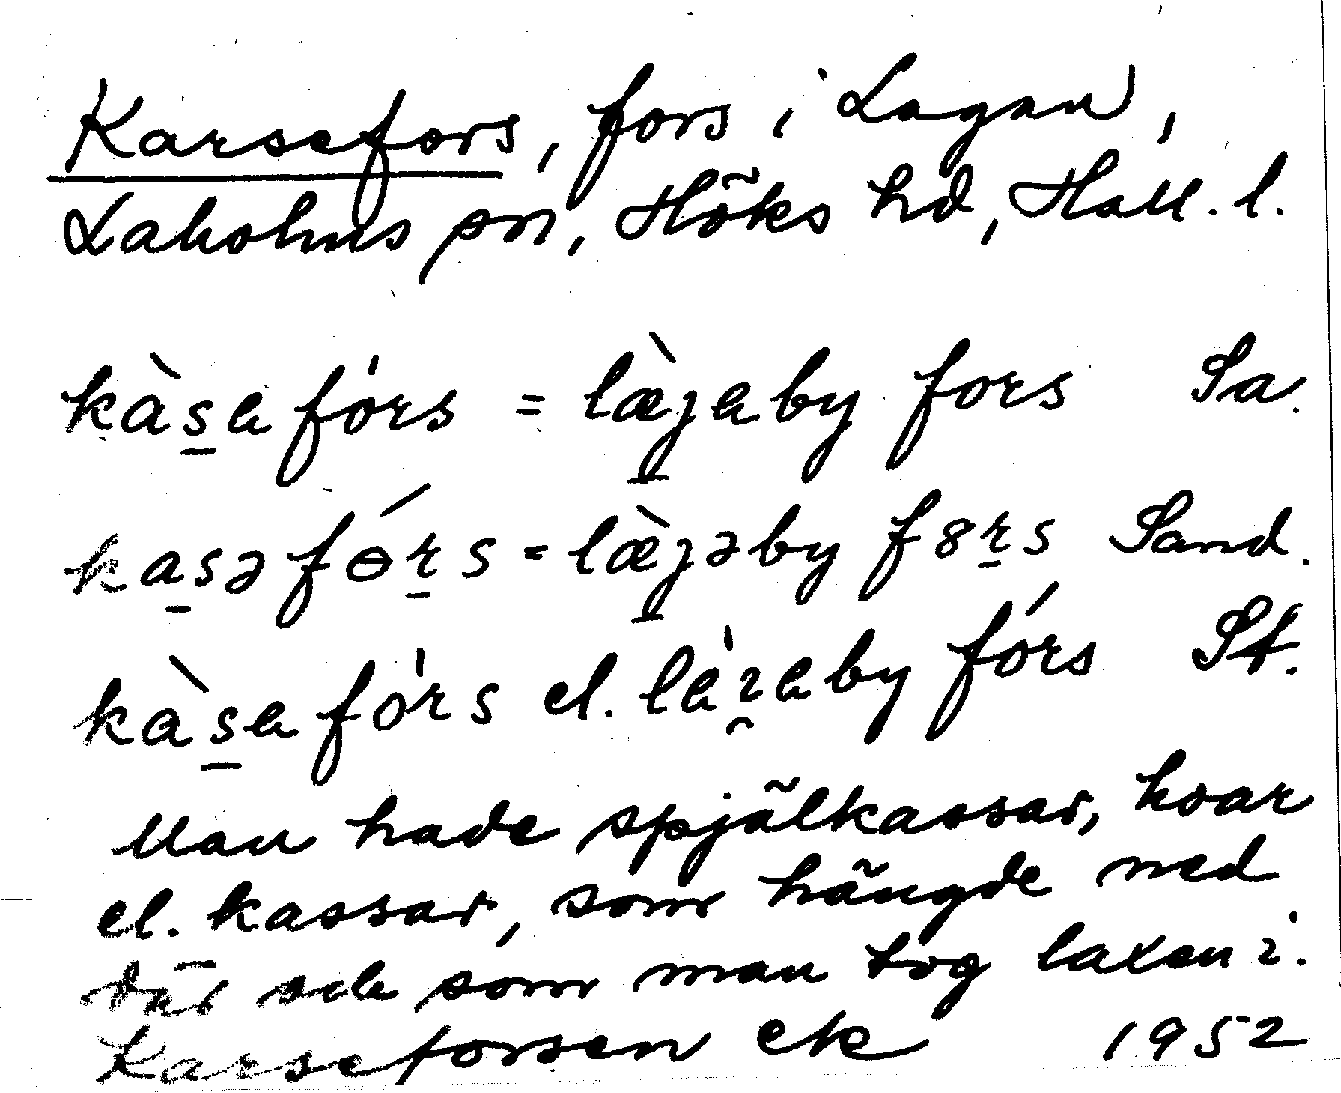 Karsefors, fors i Lagan,
Laholms sn, Höks hd, Hall. l.
kàs̱a fórs = læ̀ja by fors Sa.
ka̱sə fɵ́ṟs = læ̀jə by f8ṟs Sand.
kàs̱a fórs el. la by fórs St.
Man hade spjälkassar, hvar
el. kassar, som hängde ned
där och som man tog laxen i.
Karseforsen ek 1952